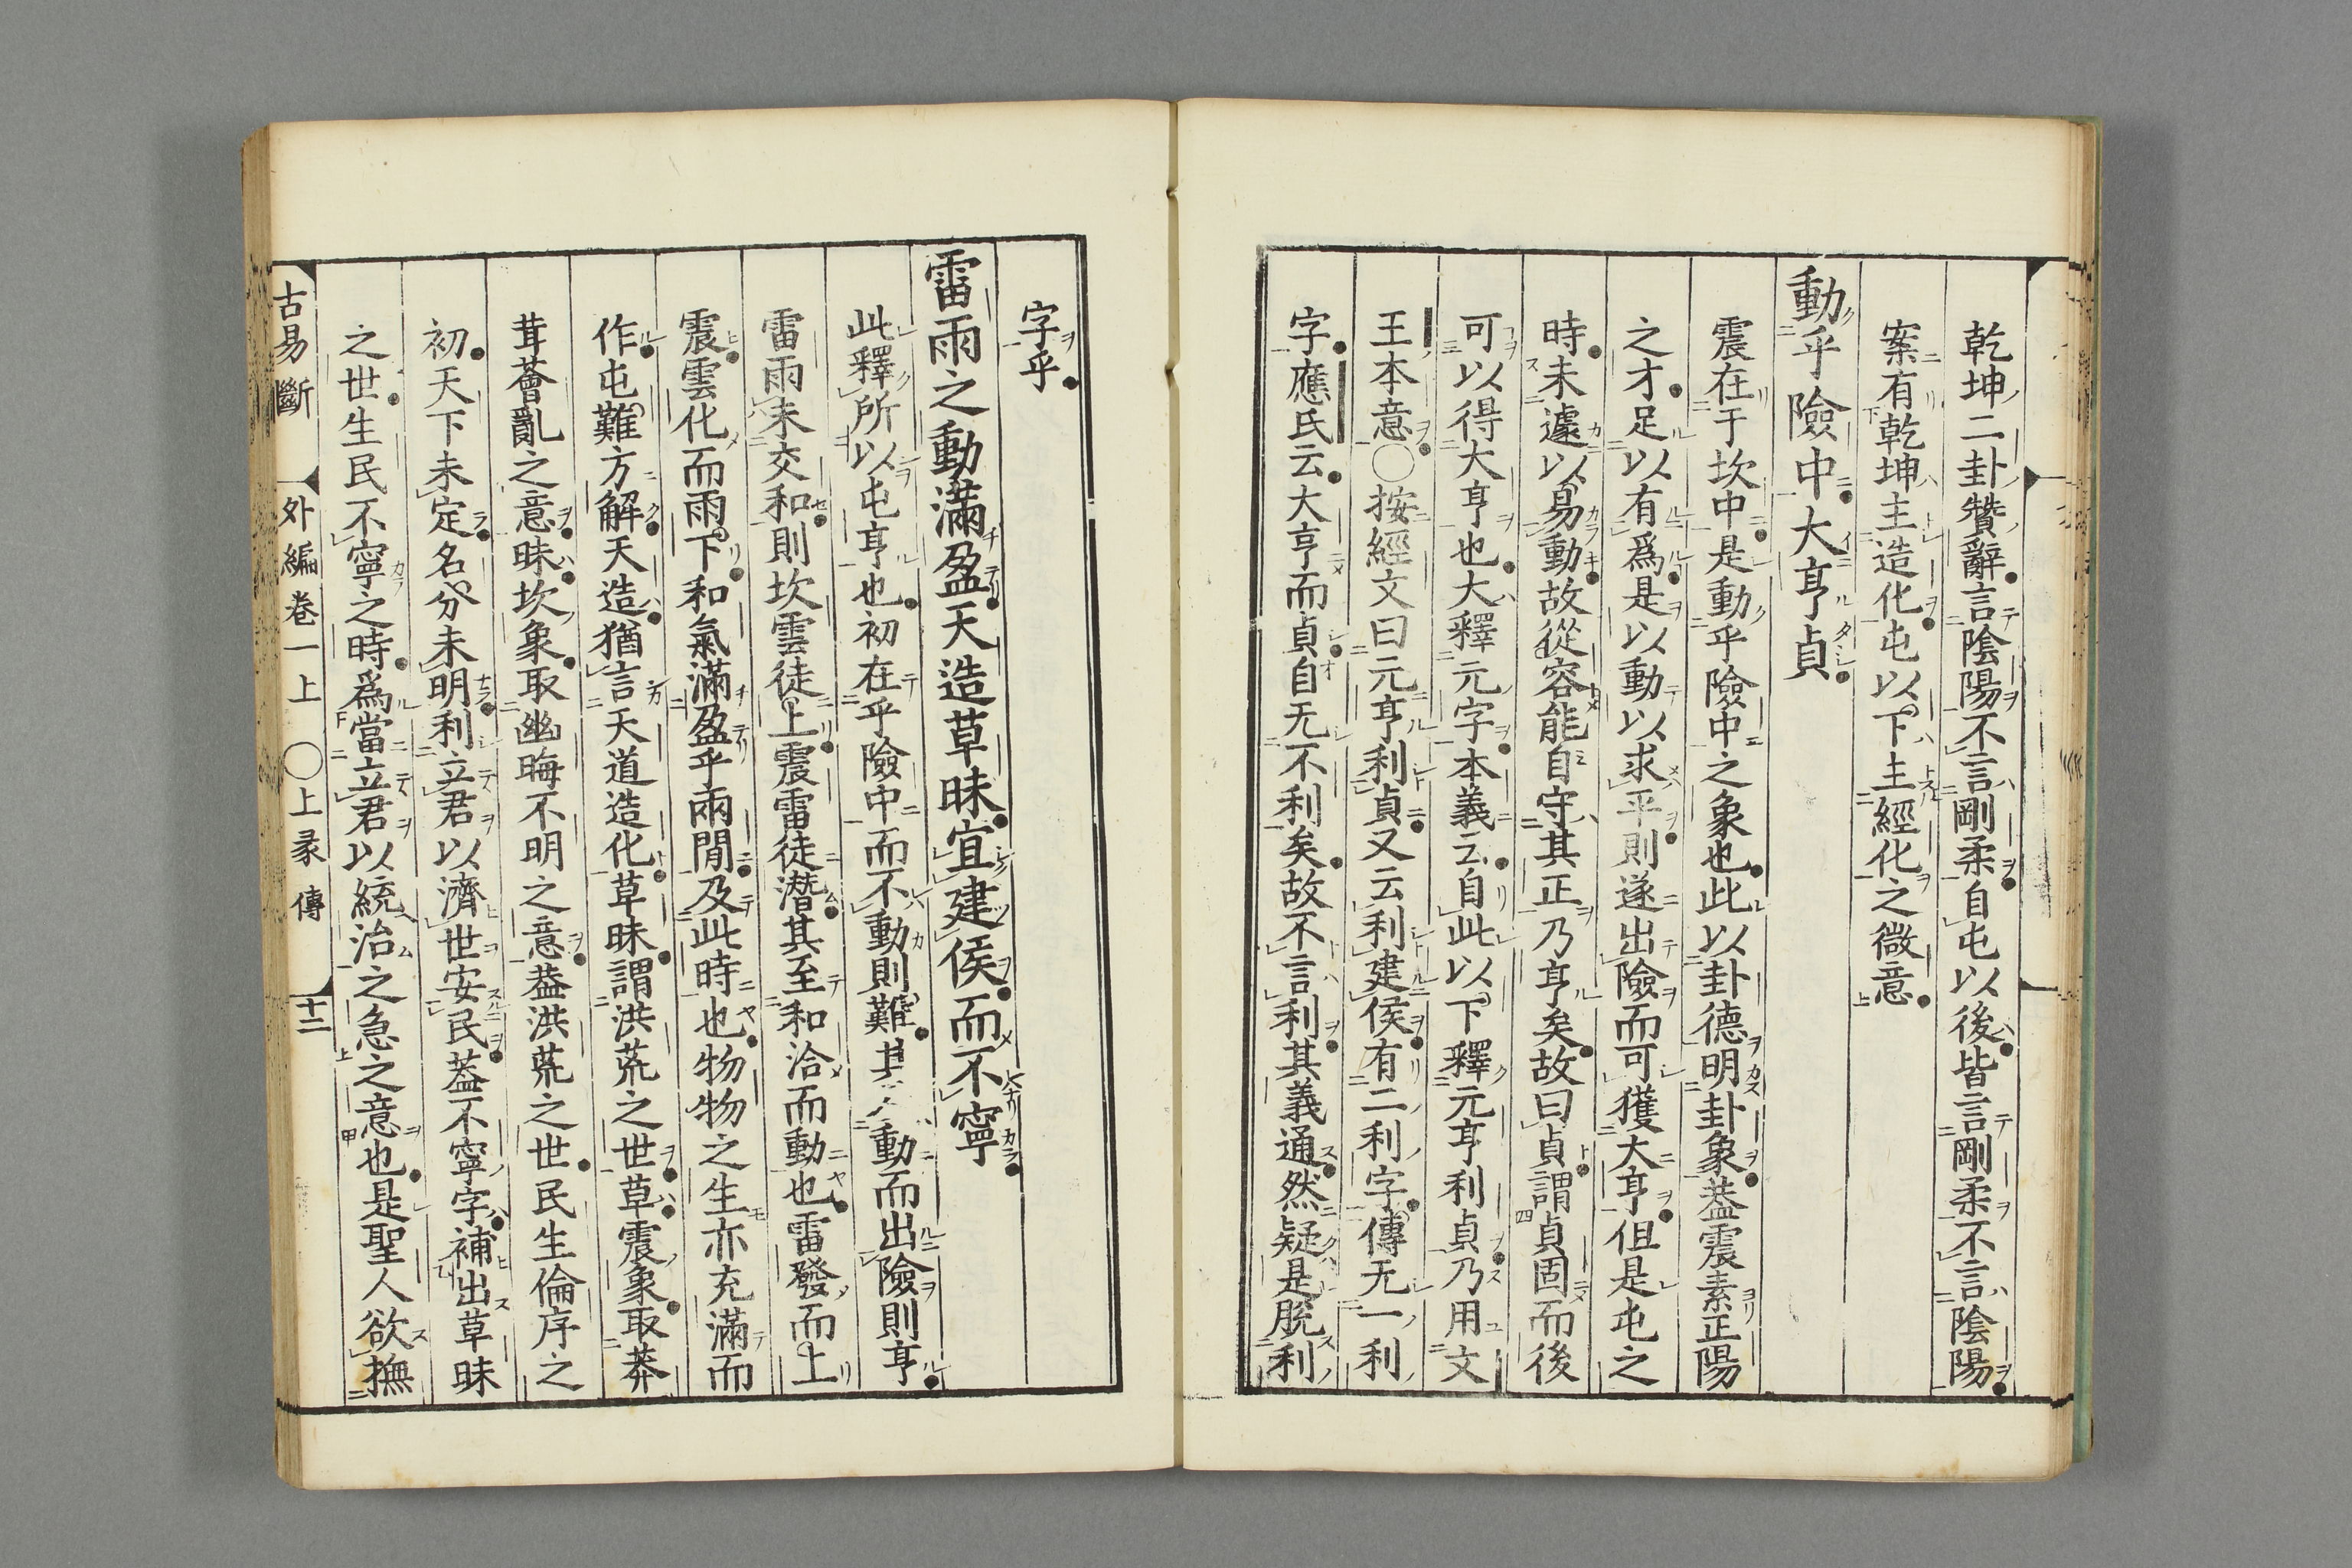 乾坤二卦贊辭言陰陽不言剛柔自屯以後皆言剛柔不言陰陽
案有乾坤主造化屯以下主經化之微意
動乎險中大亨貞
震在于坎中是動乎險中之象也此以卦德明卦象葢震素正陽
之才足以有爲是以動以求平則遂出險而可獲大亨但是屯之
時未遽以易動故從容能自守其正乃亨矣故曰貞謂貞固而後
可以得大亨也大釋元字本義云自此以下釋元亨利貞乃用文
王本意○按經文曰元亨利貞又云利建侯有二利字傳无一利
字應氏云大亨而貞自无不利矣故不言利其義通然疑是脫利
字乎
雷雨之動滿盈天造草昧宜建侯而不寧
此釋所以屯亨也初在乎險中而不動則難其 動而出險則亨
雷雨未交和則坎雲徒上震雷徒潛其至和洽而動也雷發而上
震雲化而雨下和氣滿盈乎兩間及此時也物物之生亦充滿而
作屯難方解天造猶言天道造化草昧謂洪荒之世草震象取莽
茸薈亂之意昧坎象取幽晦不明之意葢洪荒之世民生倫序之
初天下未定名分未明利立君以濟世安民葢不寧字補出草昧
之世生民不寧之時爲當立君以統治之急之意也是聖人欲撫
古易斷　外編卷一上　○上彖傳　十二